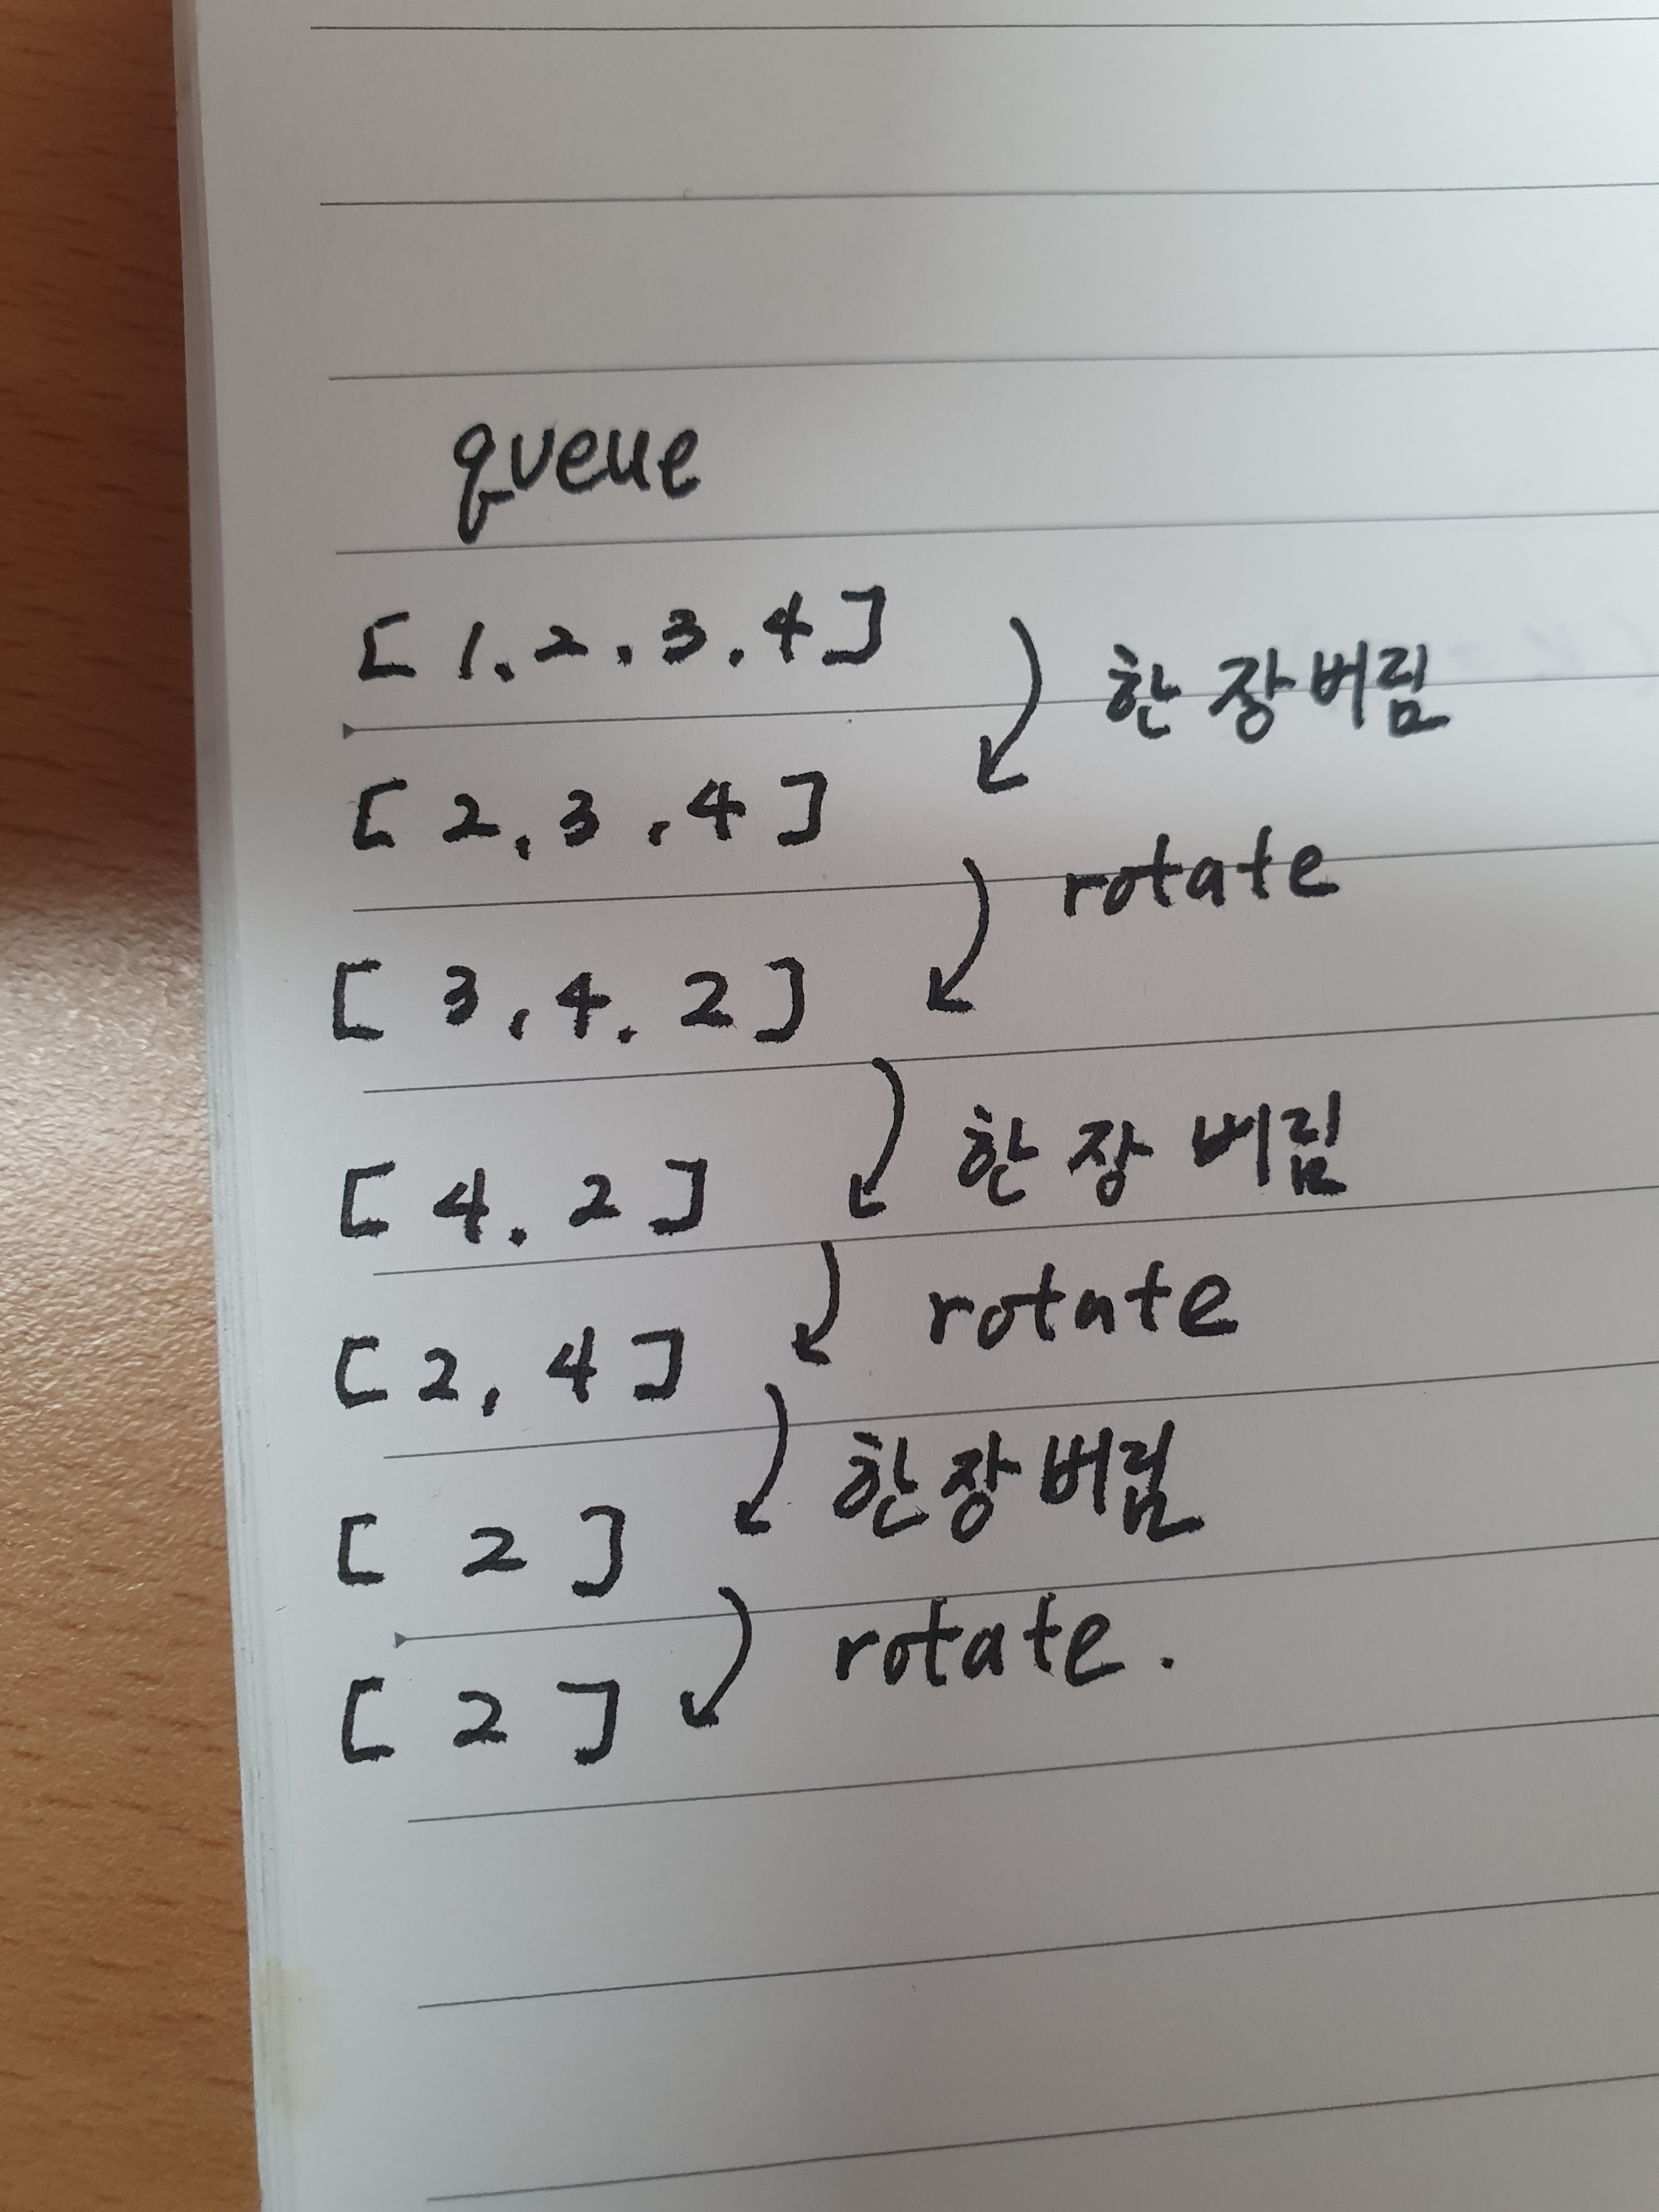 queue
[ 1. 2 . 3 . 4 ]
한 장 버림
[ 2, 3 , 4 ]
rotate
[ 3, 4. 2 ]
한 장 버림
[ 4. 2 ]
rotate
[ 2, 4 ]
한 장 버림
[ 2 ]
rotate.
[ 2 ]